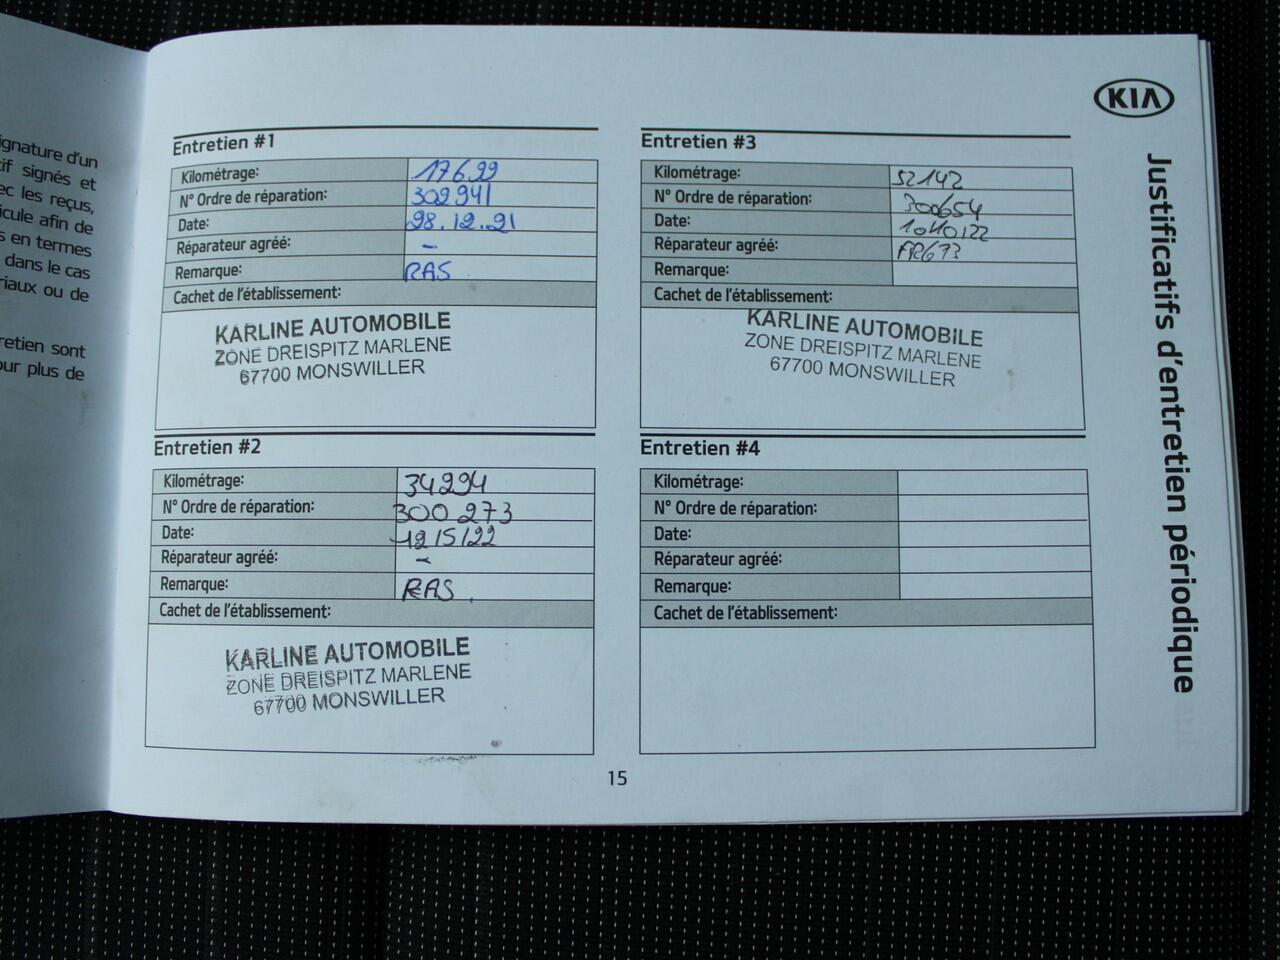 ignature d'un
if signés et
ec les reçus,
icule afin de
s en termes
dans le cas
riaux ou de
retien sont
our plus de
KIA
Justificatifs d'entretien périodique
Entretien #1
Kilométrage: 17699
N° Ordre de réparation: 302941
Date: 28.12.21
Réparateur agréé: -
Remarque: RAS
Cachet de l'établissement:
KARLINE AUTOMOBILE
ZONE DREISPITZ MARLENE
67700 MONSWILLER
Entretien #2
Kilométrage: 34294
N° Ordre de réparation: 300273
Date: 12/5/22
Réparateur agréé: -
Remarque: RAS.
Cachet de l'établissement:
KARLINE AUTOMOBILE
ZONE DREISPITZ MARLENE
67700 MONSWILLER
Entretien #3
Kilométrage: 52142
N° Ordre de réparation: 300654
Date: 10/10/22
Réparateur agréé: FR673
Remarque:
Cachet de l'établissement:
KARLINE AUTOMOBILE
ZONE DREISPITZ MARLENE
67700 MONSWILLER
Entretien #4
Kilométrage:
N° Ordre de réparation:
Date:
Réparateur agréé:
Remarque:
Cachet de l'établissement:
15